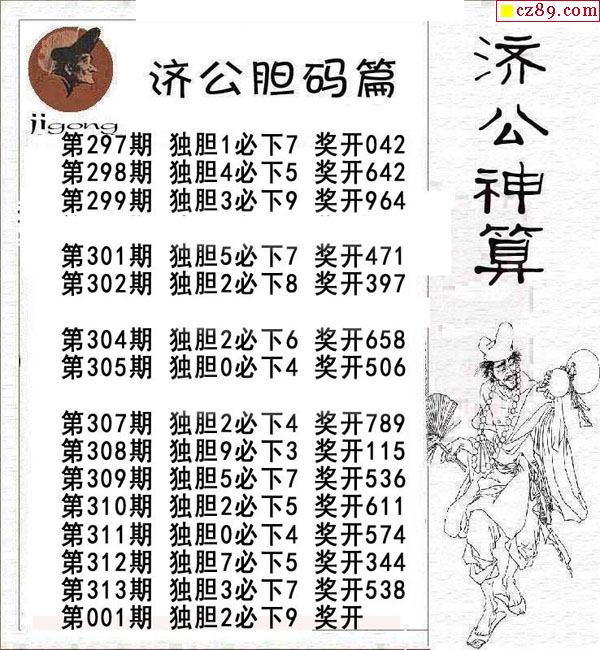 cz89.com
济公胆码篇
jigong
第297期 独胆1必下7 奖开042
第298期 独胆4必下5 奖开642
第299期 独胆3必下9 奖开964
第301期 独胆5必下7 奖开471
第302期 独胆2必下8 奖开397
第304期 独胆2必下6 奖开658
第305期 独胆0必下4 奖开506
第307期 独胆2必下4 奖开789
第308期 独胆9必下3 奖开115
第309期 独胆5必下7 奖开536
第310期 独胆2必下5 奖开611
第311期 独胆0必下4 奖开574
第312期 独胆7必下5 奖开344
第313期 独胆3必下7 奖开538
第001期 独胆2必下9 奖开
济公神算